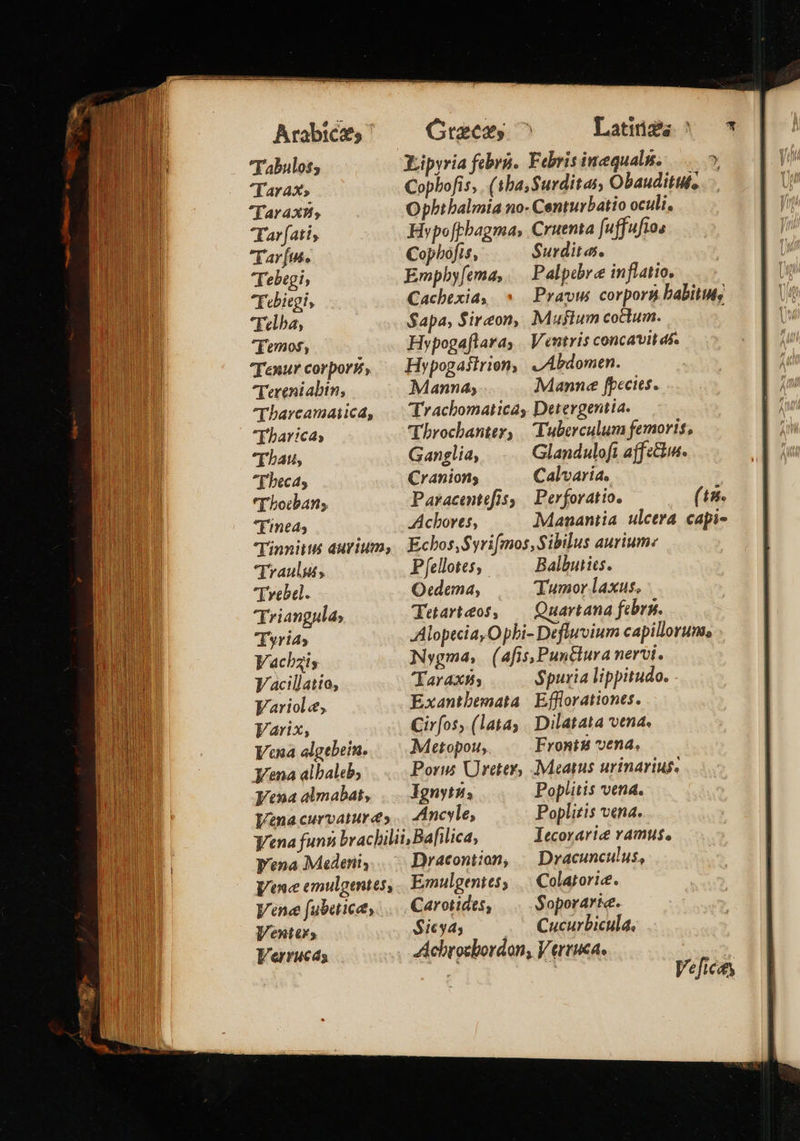 Arabicæ, Græcæ, Latinæ
Tabulos, Lipyria febris. Febris inæqualis.
Tarax, Cophosis, (tha, Surditas, Obauditus.
Taraxis, Ophthalmia no- Conturbatio oculi.
Tarsati, Hyposphagma, Cruenta suffusios
Tarsus. Cophosis, Surditas.
Tebegi, Emphysema, Palpebræ inflatio.
Tebiegi, Cachexia, Pravus corporis habitus,
Telha, Sapa, Siræon, Mustum coctum.
Temos, Hypogastara, Ventris concavitas.
Tenur corporis, Hypogastrion, Abdomen.
Tereniabin, Manna, Mannæ species.
Tharcamatica, Trachomatica, Detergentia.
Tharica, Throchanter, Tuberculum femoris,
Thau, Ganglia, Glandulosi affectus.
Theca, Cranion, Calvaria.
Thoeban, Paracentesis, Perforatio. (tis.
Tinea, Achores, Manantia ulcera capi-
Tinnitus aurium, Echos, Syrismos, Sibilus aurium.
Traulus, Psellotes, Balbuties.
Trebel. Oedema, Tumor laxus.
Triangula, Tetartæos, Quartana febris.
Tyria, Alopecia, Ophi- Defluvium capillorum,
Vachzi, Nygma, (asis, Punctura nervi.
Vacillatio, Taraxis, Spuria lippitudo.
Variolæ, Exanthemata Efflorationes.
Varix, Cirsos, (lata, Dilatata vena.
Vena algebein. Metopou, Frontis vena.
Vena albaleb, Porus Ureter, Meatus urinarius.
Vena almabat, Ignytis, Poplitis vena.
Vena curvaturæ, Ancyle, Poplitis vena.
Vena funis brachilii, Basilica, Iecorariæ ramus.
Vena Medeni, Dracontion, Dracunculus,
Venæ emulgentes, Emulgentes, Colatoriæ.
Venæ subeticæ, Carotides, Soporariæ.
Venter, Sicya, Cucurbicula.
Verruca, Achrochordon, Verruca.
Vesicæ,